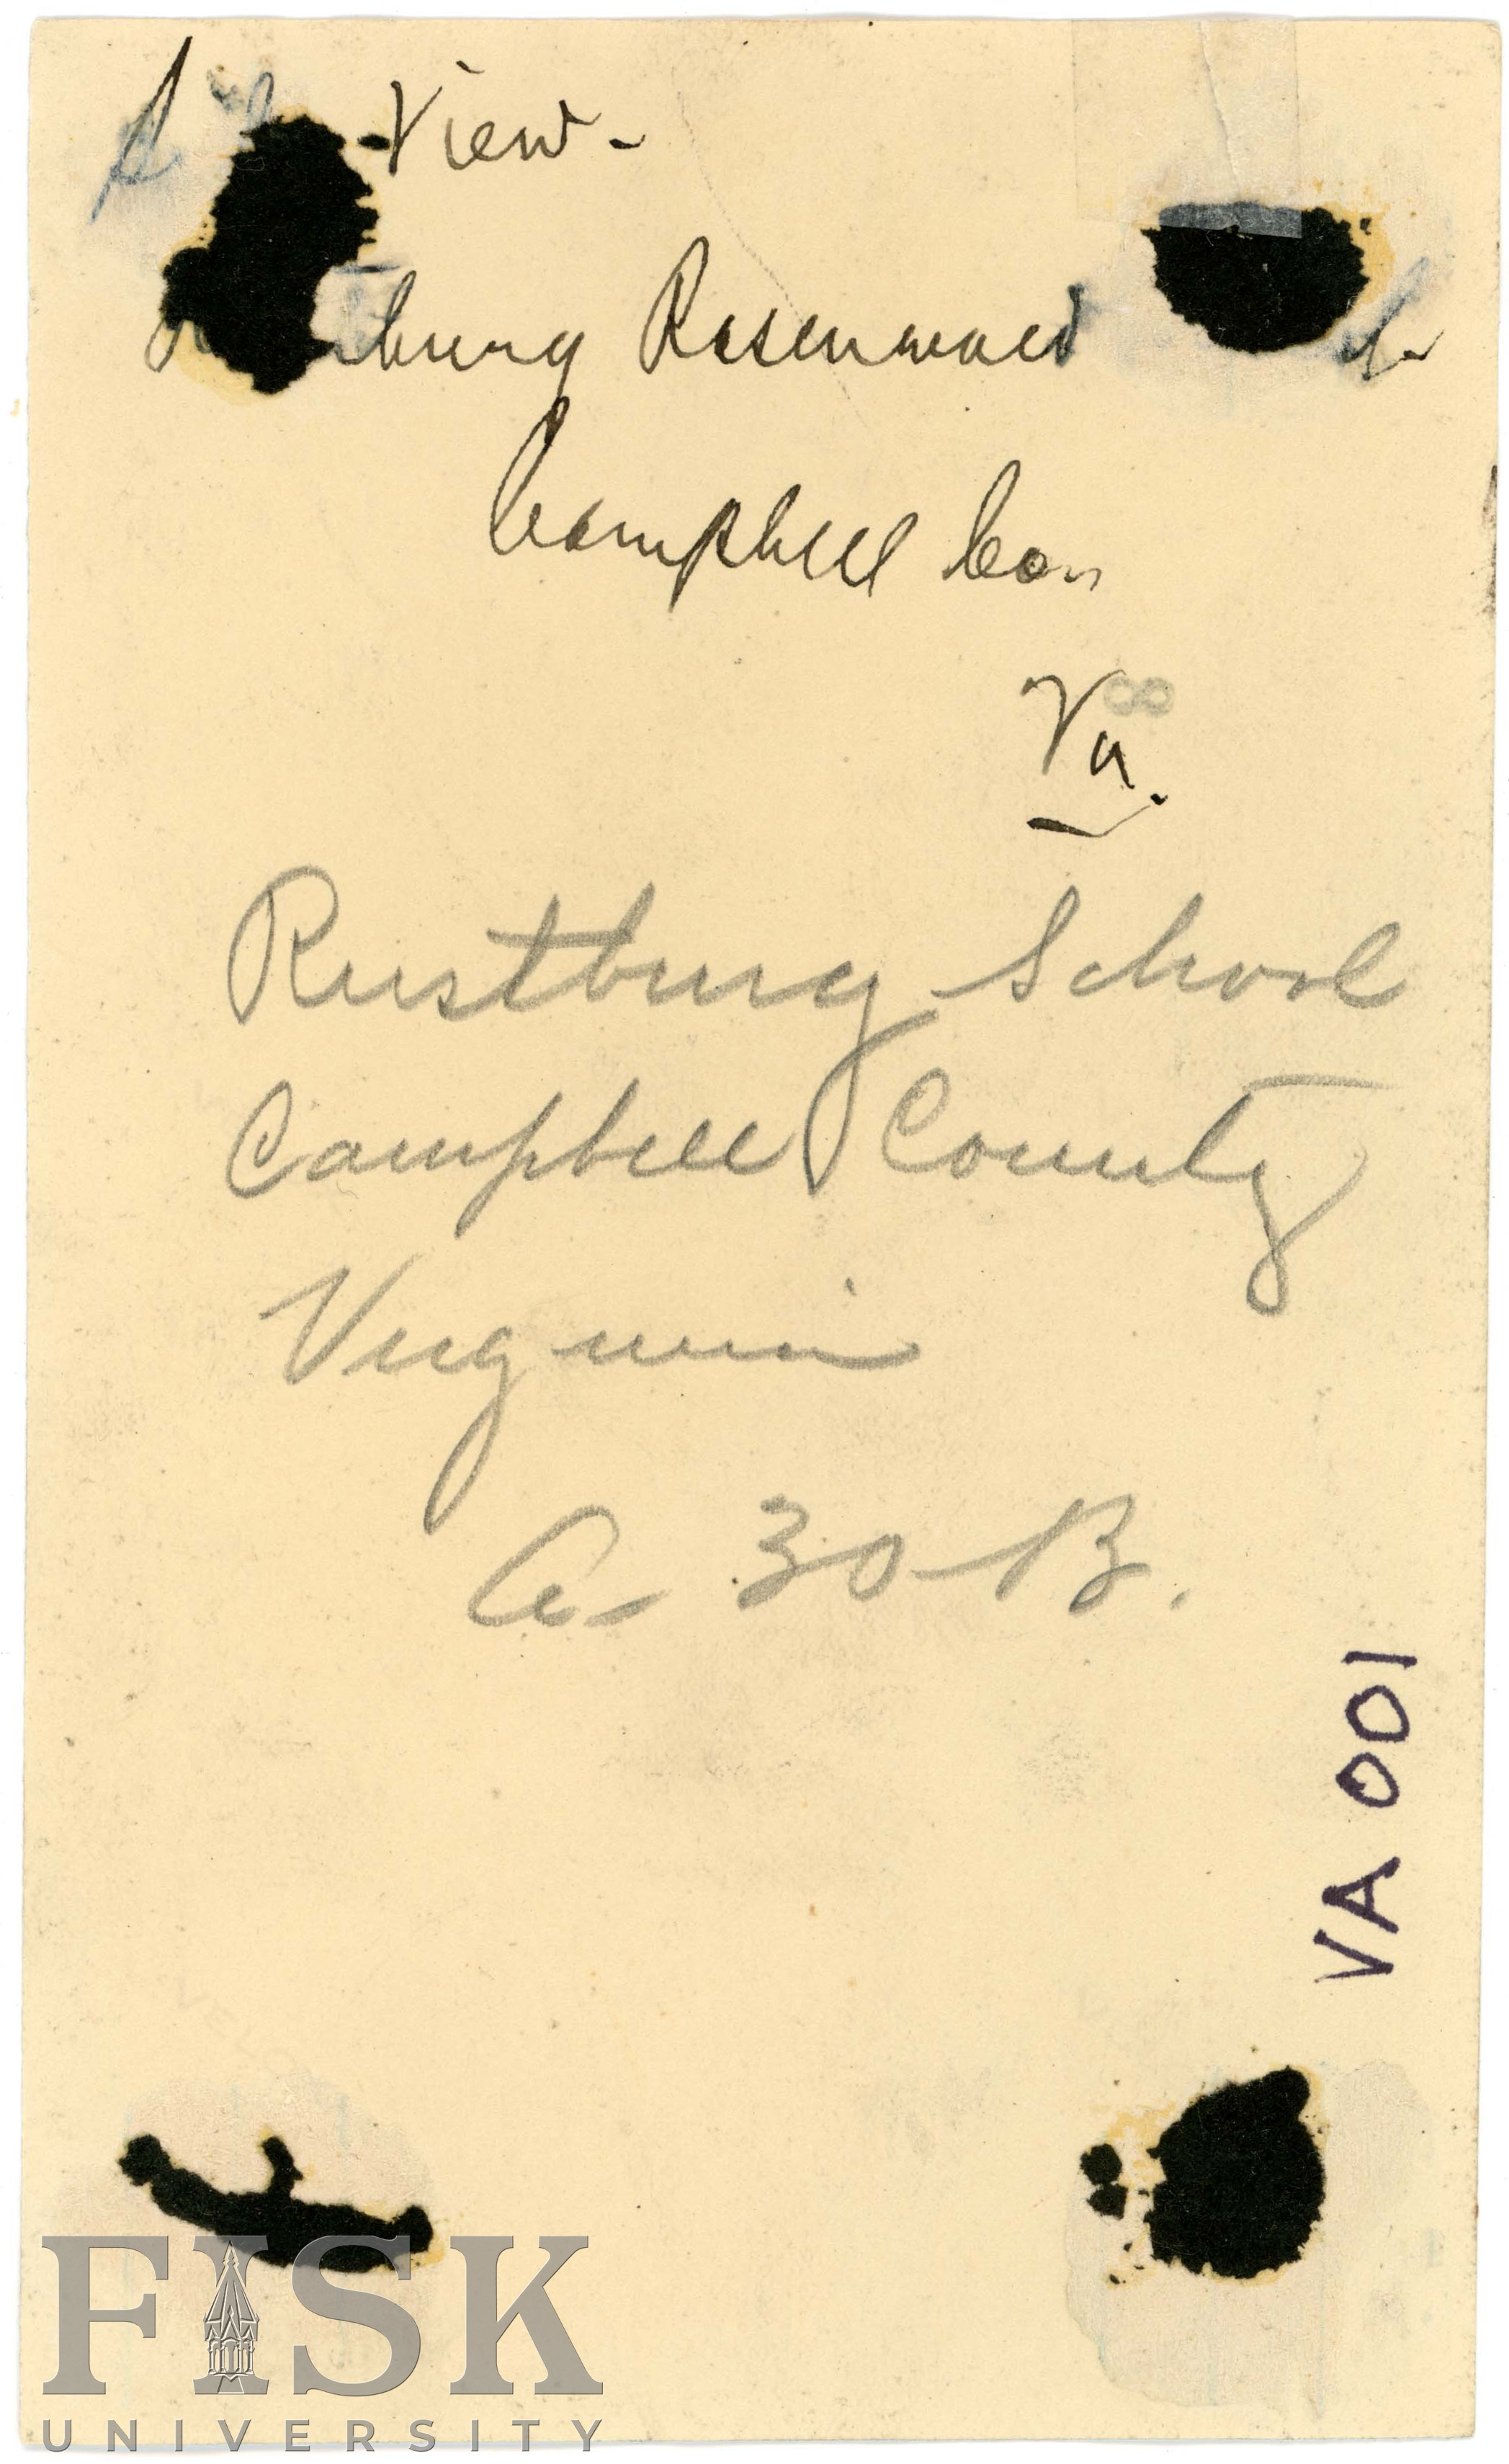 View -
Rosenwald
Campbell Co.
Va.
8
Rustburg School
Campbell County
Virginia
A- 30-B.
VA 001
FISK
UNIVERSITY